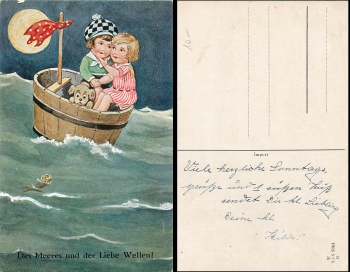 Des Meeres und der Liebe Wellen!
10-
Import
Viele herzliche Sonntags
grüße und 1 süßen Kuß
sendet Dir
Deine